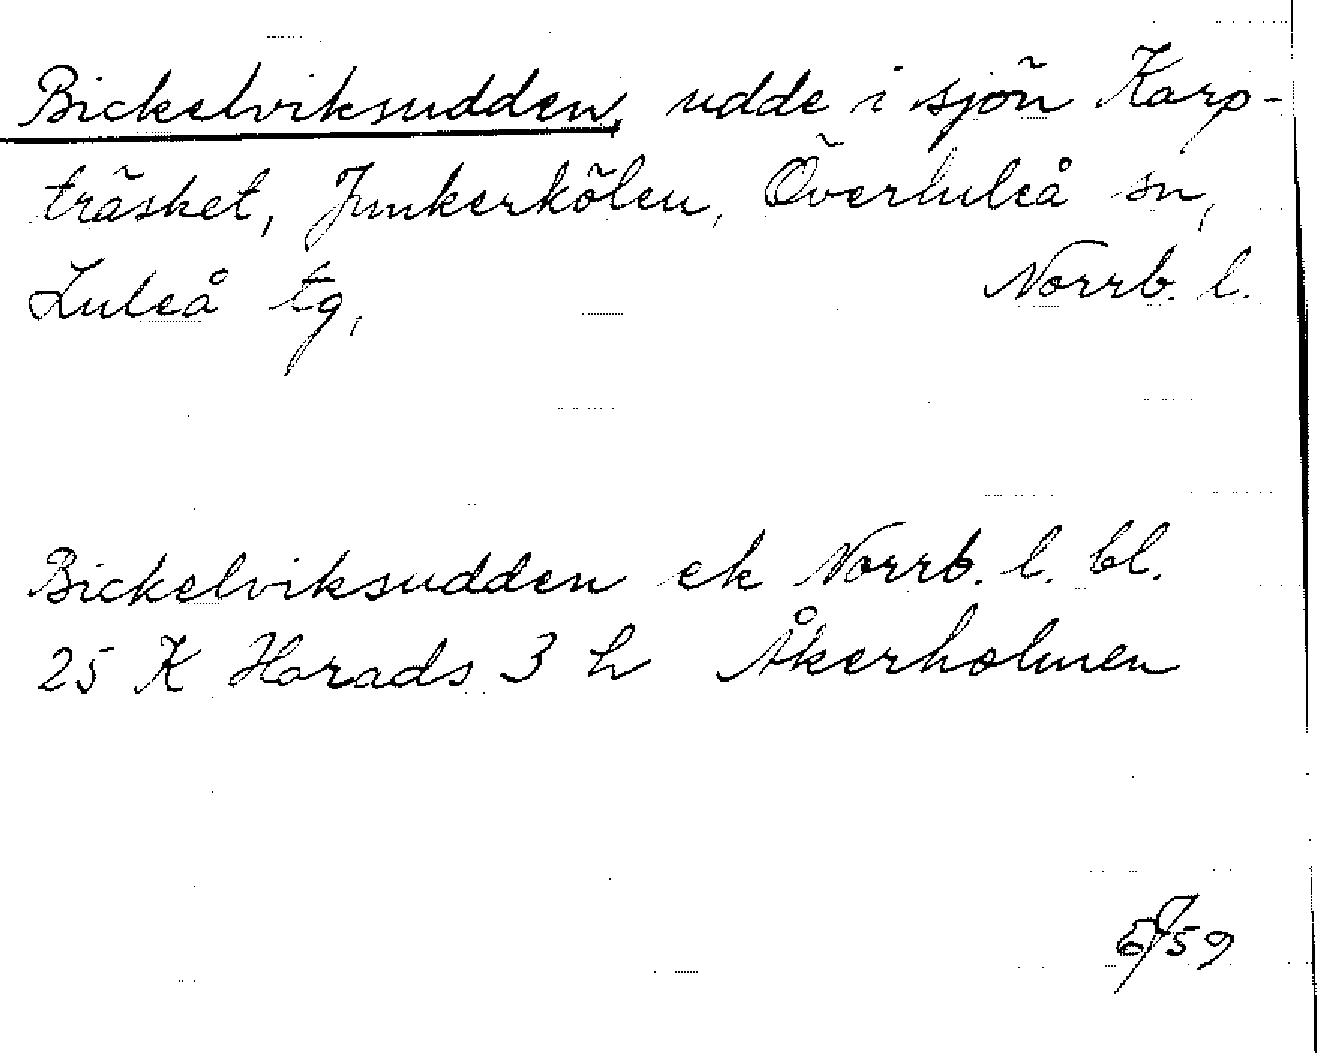 Bickelviksudden, udde i sjön Karp-
träsket, Junkerkölen, Överluleå sn,
Luleå tg,
Norrb. l.
Bickelviksudden ek Norrb. l. bl.
25 K Harads 3 h Åkerholmen